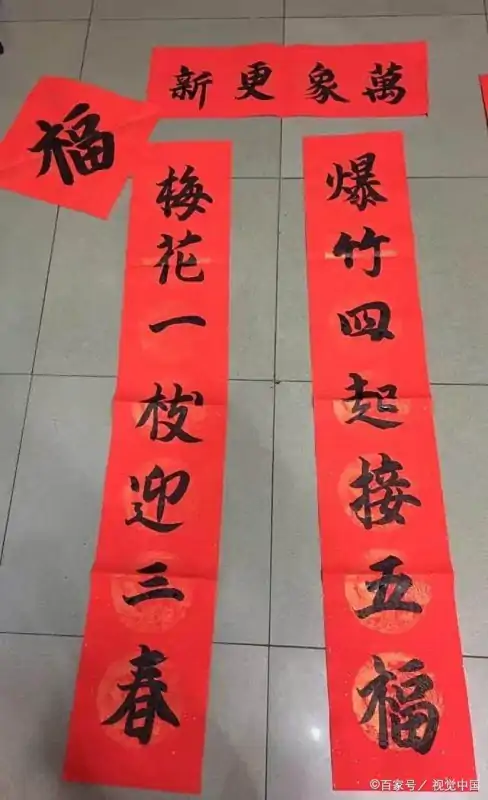 萬象更新
爆竹四起接五福
梅花一枝迎三春
福
©百家号／视觉中国